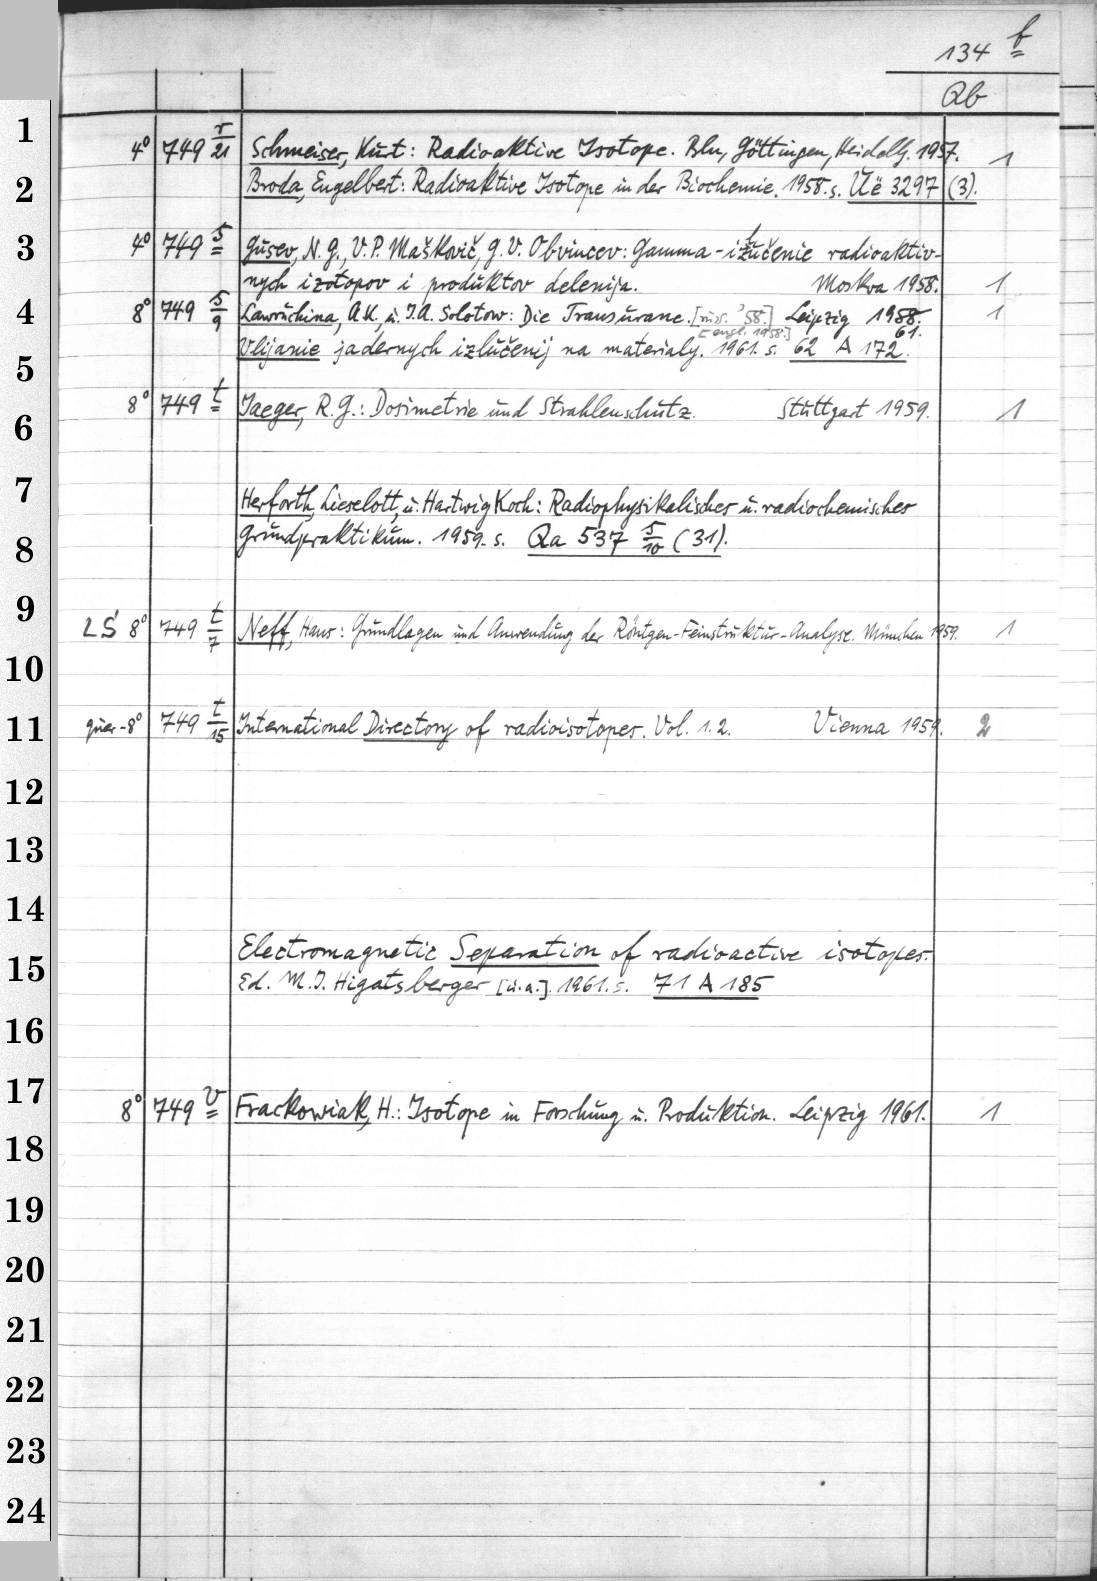 134 f
Qb
1
4° 749 r/21 Schmeiser, Kurt: Radioaktive Isotope. Bln, Göttingen, Heidelbg. 1957. 1
2
Broda, Engelbert: Radioaktive Isotope in der Biochemie. 1958. s. Üë 3297 (3).
3
4° 749 s Gusev, N. G., V. P. Maškovič, G. V. Obvincev: Gamma-izlučenie radioaktiv-
nych izotopov i produktov delenija. Moskva 1958. 1
4
8° 749 s/9 Lawruchina, A.K. u. J.A. Solotow: Die Transurane. [russ. '58.] Leipzig 1958. 1
[engl. 1958.] 61.
Vlijanie jadernych izlučenij na materialy. 1961. s. 62 A 172.
5
8° 749 t Jaeger, R. G.: Dosimetrie und Strahlenschutz. Stuttgart 1959. 1
6
7
Herforth, Lieselott, u. Hartwig Koch: Radiophysikalisches u. radiochemisches
Grundpraktikum. 1959. s. Qa 537 s/10 (31).
8
9
LS 8° 749 t/7 Neff, Hans: Grundlagen und Anwendung der Röntgen-Feinstruktur-Analyse. München 1959. 1
10
11
quer-8° 749 t/15 International Directory of radioisotopes. Vol. 1.2. Vienna 1959. 2
12
13
14
Electromagnetic Separation of radioactive isotopes.
15
Ed. M. J. Higatsberger [u.a.]. 1961. s. 71 A 185
16
17
8° 749 v Frackowiak, H.: Isotope in Forschung u. Produktion. Leipzig 1961. 1
18
19
20
21
22
23
24